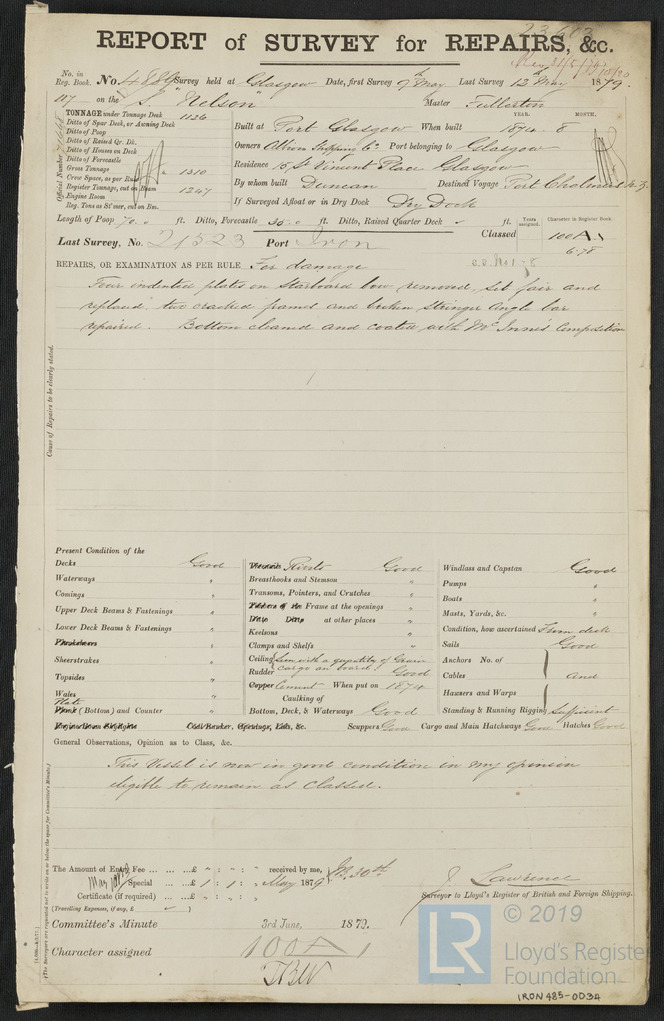 23603
REPORT of SURVEY for REPAIRS, &c.
No. in Reg. Book. No. Survey held at Glasgow Date, first Survey 9th May Last Survey 12th May 1879.
117 on the S. "Nelson" Master Fullarton
TONNAGE under Tonnage Deck 1126
Ditto of Spar Deck, or Awning Deck
Ditto of Poop
Ditto of Raised Qr. Dk.
Ditto of Houses on Deck
Ditto of Forecastle
Gross Tonnage 1310
Crew Space, as per Rule
Register Tonnage, cut on Beam 1247
Engine Room
Reg. Tons as St'mer, cut on Bm.
Official Number
YEAR. MONTH.
Built at Port Glasgow When built 1874 - 8
Owners Albion Shipping Co. Port belonging to Glasgow
Residence 15 St Vincent Place Glasgow
By whom built Duncan Destined Voyage Port Chalmers N. Z.
If Surveyed Afloat or in Dry Dock Dry Dock
Length of Poop 70.0 ft. Ditto, Forecastle 35.0 ft. Ditto, Raised Quarter Deck ft.
Years assigned. Character in Register Book.
Last Survey, No. 21523 Port Iron
Classed 100A1
6.78
REPAIRS, OR EXAMINATION AS PER RULE For damage
Four indented plates on Starboard bow removed, set fair and
replaced, two cracked frames and broken Stringer Angle bar
repaired. Bottom cleaned and coated with McInnes Composition
Cause of Repairs to be clearly stated.
Present Condition of the
Decks Good
Waterways "
Comings "
Upper Deck Beams & Fastenings "
Lower Deck Beams & Fastenings "
Sheerstrakes "
Topsides "
Wales "
Plate (Bottom) and Counter "
Coal Bunker, Openings, Lids, &c.
Rivets Good
Breasthooks and Stemson "
Transoms, Pointers, and Crutches "
Frame at the openings "
at other places "
Keelsons "
Clamps and Shelfs "
Ceiling Seen with a quantity of Grain cargo on board
Rudder Good
Cement When put on 1874
Caulking of
Bottom, Deck, & Waterways Good
Scuppers Good Cargo and Main Hatchways Good Hatches Good
Windlass and Capstan Good
Pumps "
Boats "
Masts, Yards, &c. "
Condition, how ascertained From deck
Sails Good
Anchors No. of
Cables and
Hawsers and Warps
Standing & Running Rigging Sufficient
General Observations, Opinion as to Class, &c.
This Vessel is now in good condition in my opinion
eligible to remain as Classed.
The Amount of Entry Fee ... ... ...£ " : " : " received by me,
Special ... ...£ 1 : 1 : " May 1879
Certificate (if required) ... ...£ " : " : "
(Travelling Expenses, if any, £ )
J. Lawrence
Surveyor to Lloyd's Register of British and Foreign Shipping.
Committee's Minute 3rd June, 1879.
Character assigned 100A1
(The Surveyors are requested not to write on or below the space for Committee's Minute.)
© 2019
LR
Lloyd's Register
Foundation
IRON 485-0034